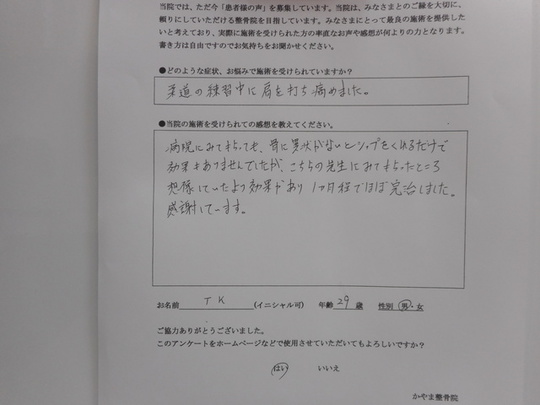 当院では、ただ今「患者様の声」を募集しています。当院は、みなさまとのご縁を大切に、
頼りにしていただける整骨院を目指しています。みなさまにとって最良の施術を提供した
いと考えており、実際に施術を受けられた方の率直なお声や感想が何よりの力となります。
書き方は自由ですのでお気持ちをお聞かせください。
●どのような症状、お悩みで施術を受けられていますか？
柔道の練習中に肩を打ち痛めました。
●当院の施術を受けられての感想を教えてください。
病院にみてもらっても、骨に異状がないとシップをくれるだけで
効果もありませんでしたが、こちらの先生にみてもらったところ
想像していたより効果があり1ヶ月程でほぼ完治しました。
感謝しています。
お名前 TK (イニシャル可) 年齢 29 歳 性別 男・女
ご協力ありがとうございました。
このアンケートをホームページなどで使用させていただいてもよろしいですか？
はい いいえ
かやま整骨院